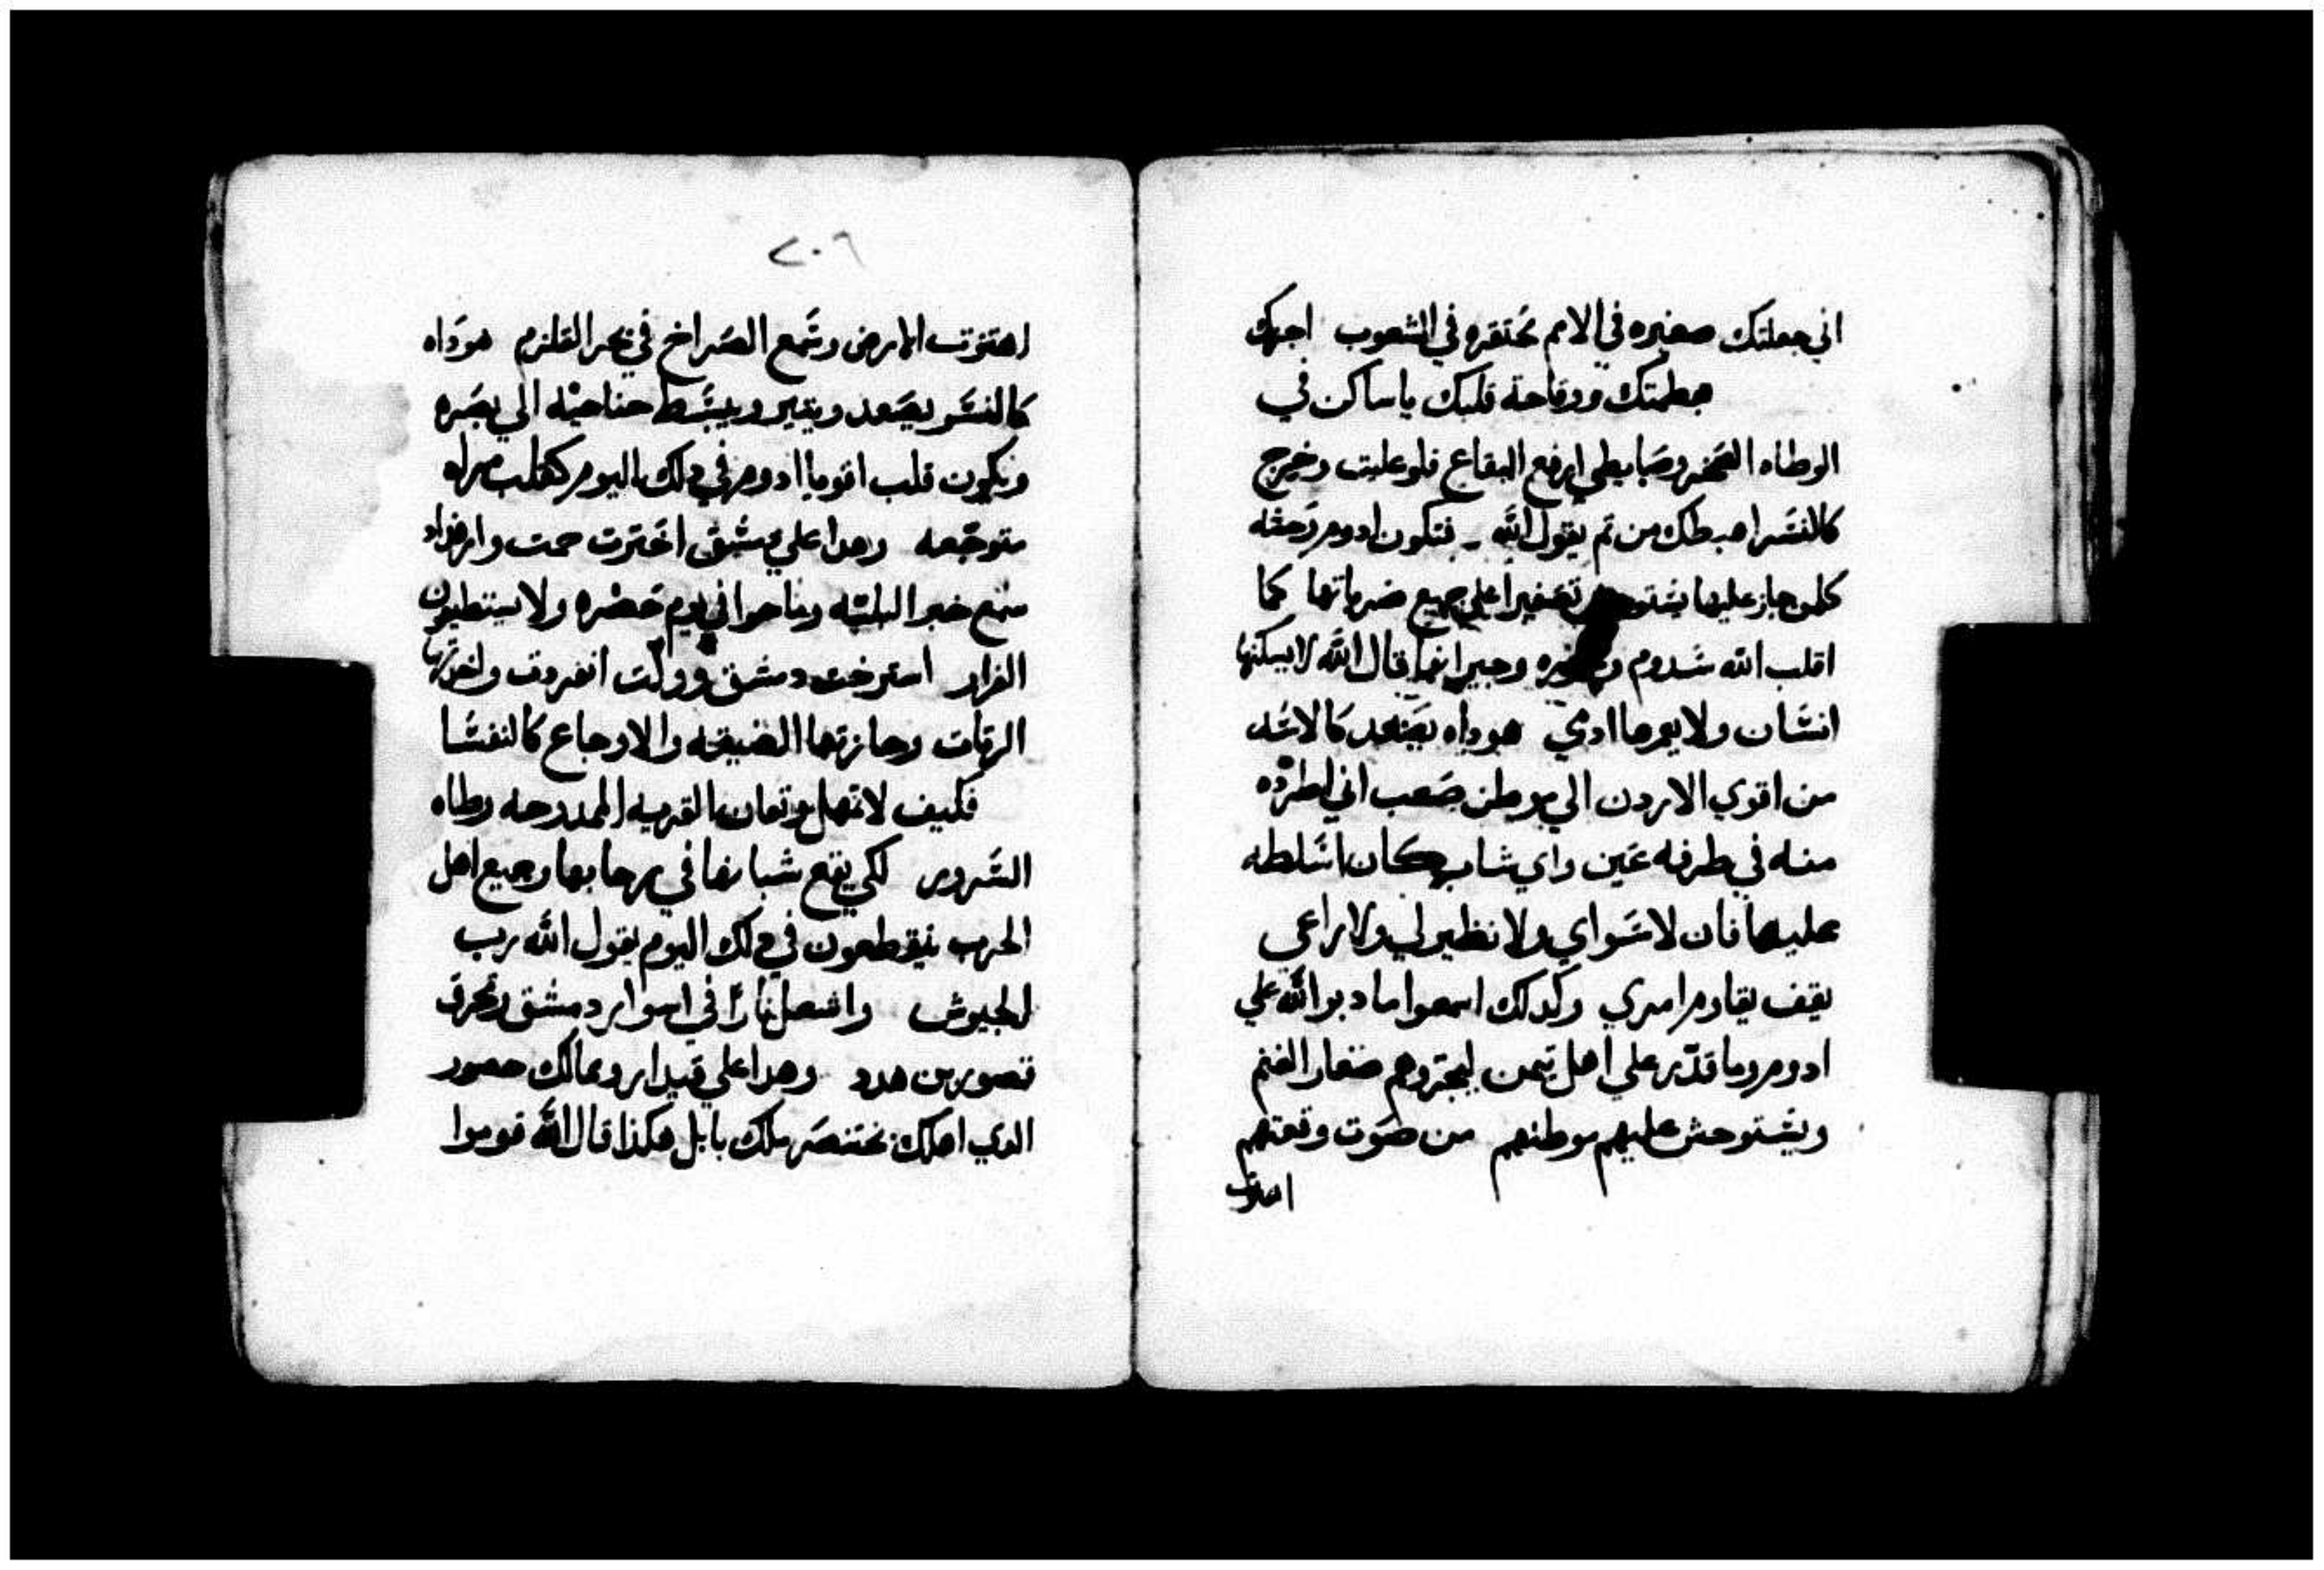 اني جعلتك صغيره في الامم محتقره في الشعوب اجهك
جطمتك ووقاحة قلبك ياساكن في
الوطاه الصخر وضابطي ارفع البقاع فلو عليت وخرج
كالنسر اهبطك من ثم يقول الله فتكون ادوم وحشه
كلمن جاز عليها تصفيرا علي جميع ضرباتها كما
اقلب الله سدوم وجيرانها قال الله لا يسكنها
انسان ولا يعمرها ادمي هوداه يصعد كالاسد
من اقوي الاردن الي موطن صعب اني اطرده
منه في طرفه عين واي شاب كان اسلطه
عليها فان لا سواي ولا نظير لي ولا راعي
يقف يقاوم امري وكدلك اسمعوا ما دبر الله علي
ادوم وما قدر علي اهل تيمن ليجتروهم صغار الغنم
ويستوحش عليهم موطنهم من صوت وقعتهم
اهتزت
٢٠٦
اهتزت الارض وسمع الصراخ في بحر القلزم هوداه
كالنسر يصعد ويتير ويبسط جناحيه الي بصره
ويكون قلب اقويا ادوم في دلك اليوم كقلب مراه
متوجعه وهدا علي دمشق اخترت حمت وارفاد
سمع خبر البليه وماحوا في يوم حضره ولا يستطيعون
الفرار استرخت دمشق وولت انصرفت واخدتها
الرتات وحازتها الضيقه والاوجاع كالنفسا
فكيف لا تمهل وتعان القريه الممدوحه وطاه
السرور لكي يقع شبانها في رحابها وجميع اهل
الحرب ينقطعون في دلك اليوم يقول الله رب
الجيوش واشعل نارا في اسوار دمشق وتحرق
قصور بن هدد وهدا علي قيدار وممالك حصور
الدي اهلك بختنصر ملك بابل هكذا قال الله قوموا